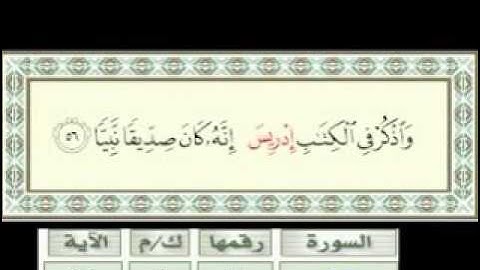 وَٱذْكُرْ فِى ٱلْكِتَٰبِ إِدْرِيسَ إِنَّهُۥ كَانَ صِدِّيقًا نَّبِيًّا ٥٦
السورة رقمها ك/م الآية